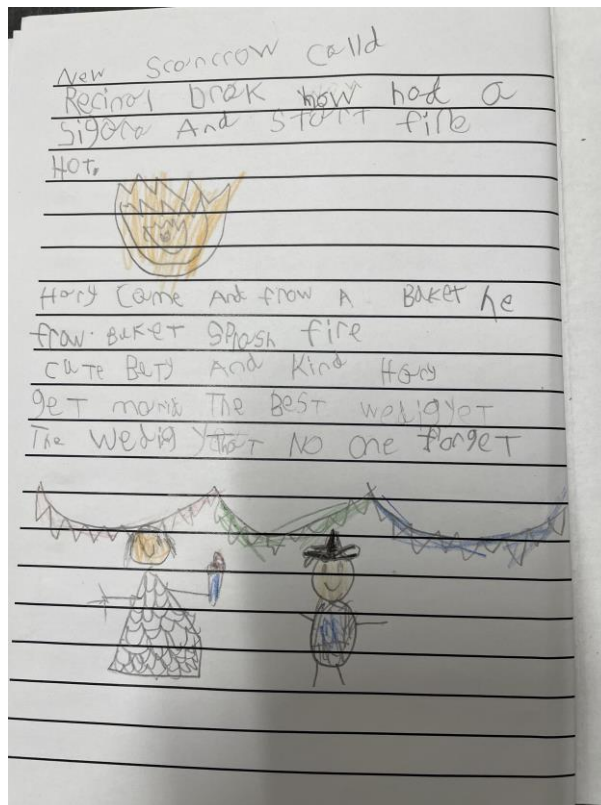 New Scarcrow Calld
Recinol brak how had a
Sigora And Start fire
HOT.
Hary Came And frow A Baket he
frow. Baket Splash fire
Cute Bety And Kind Hary
get marid The Best wedigyet
The wedig that No one forget